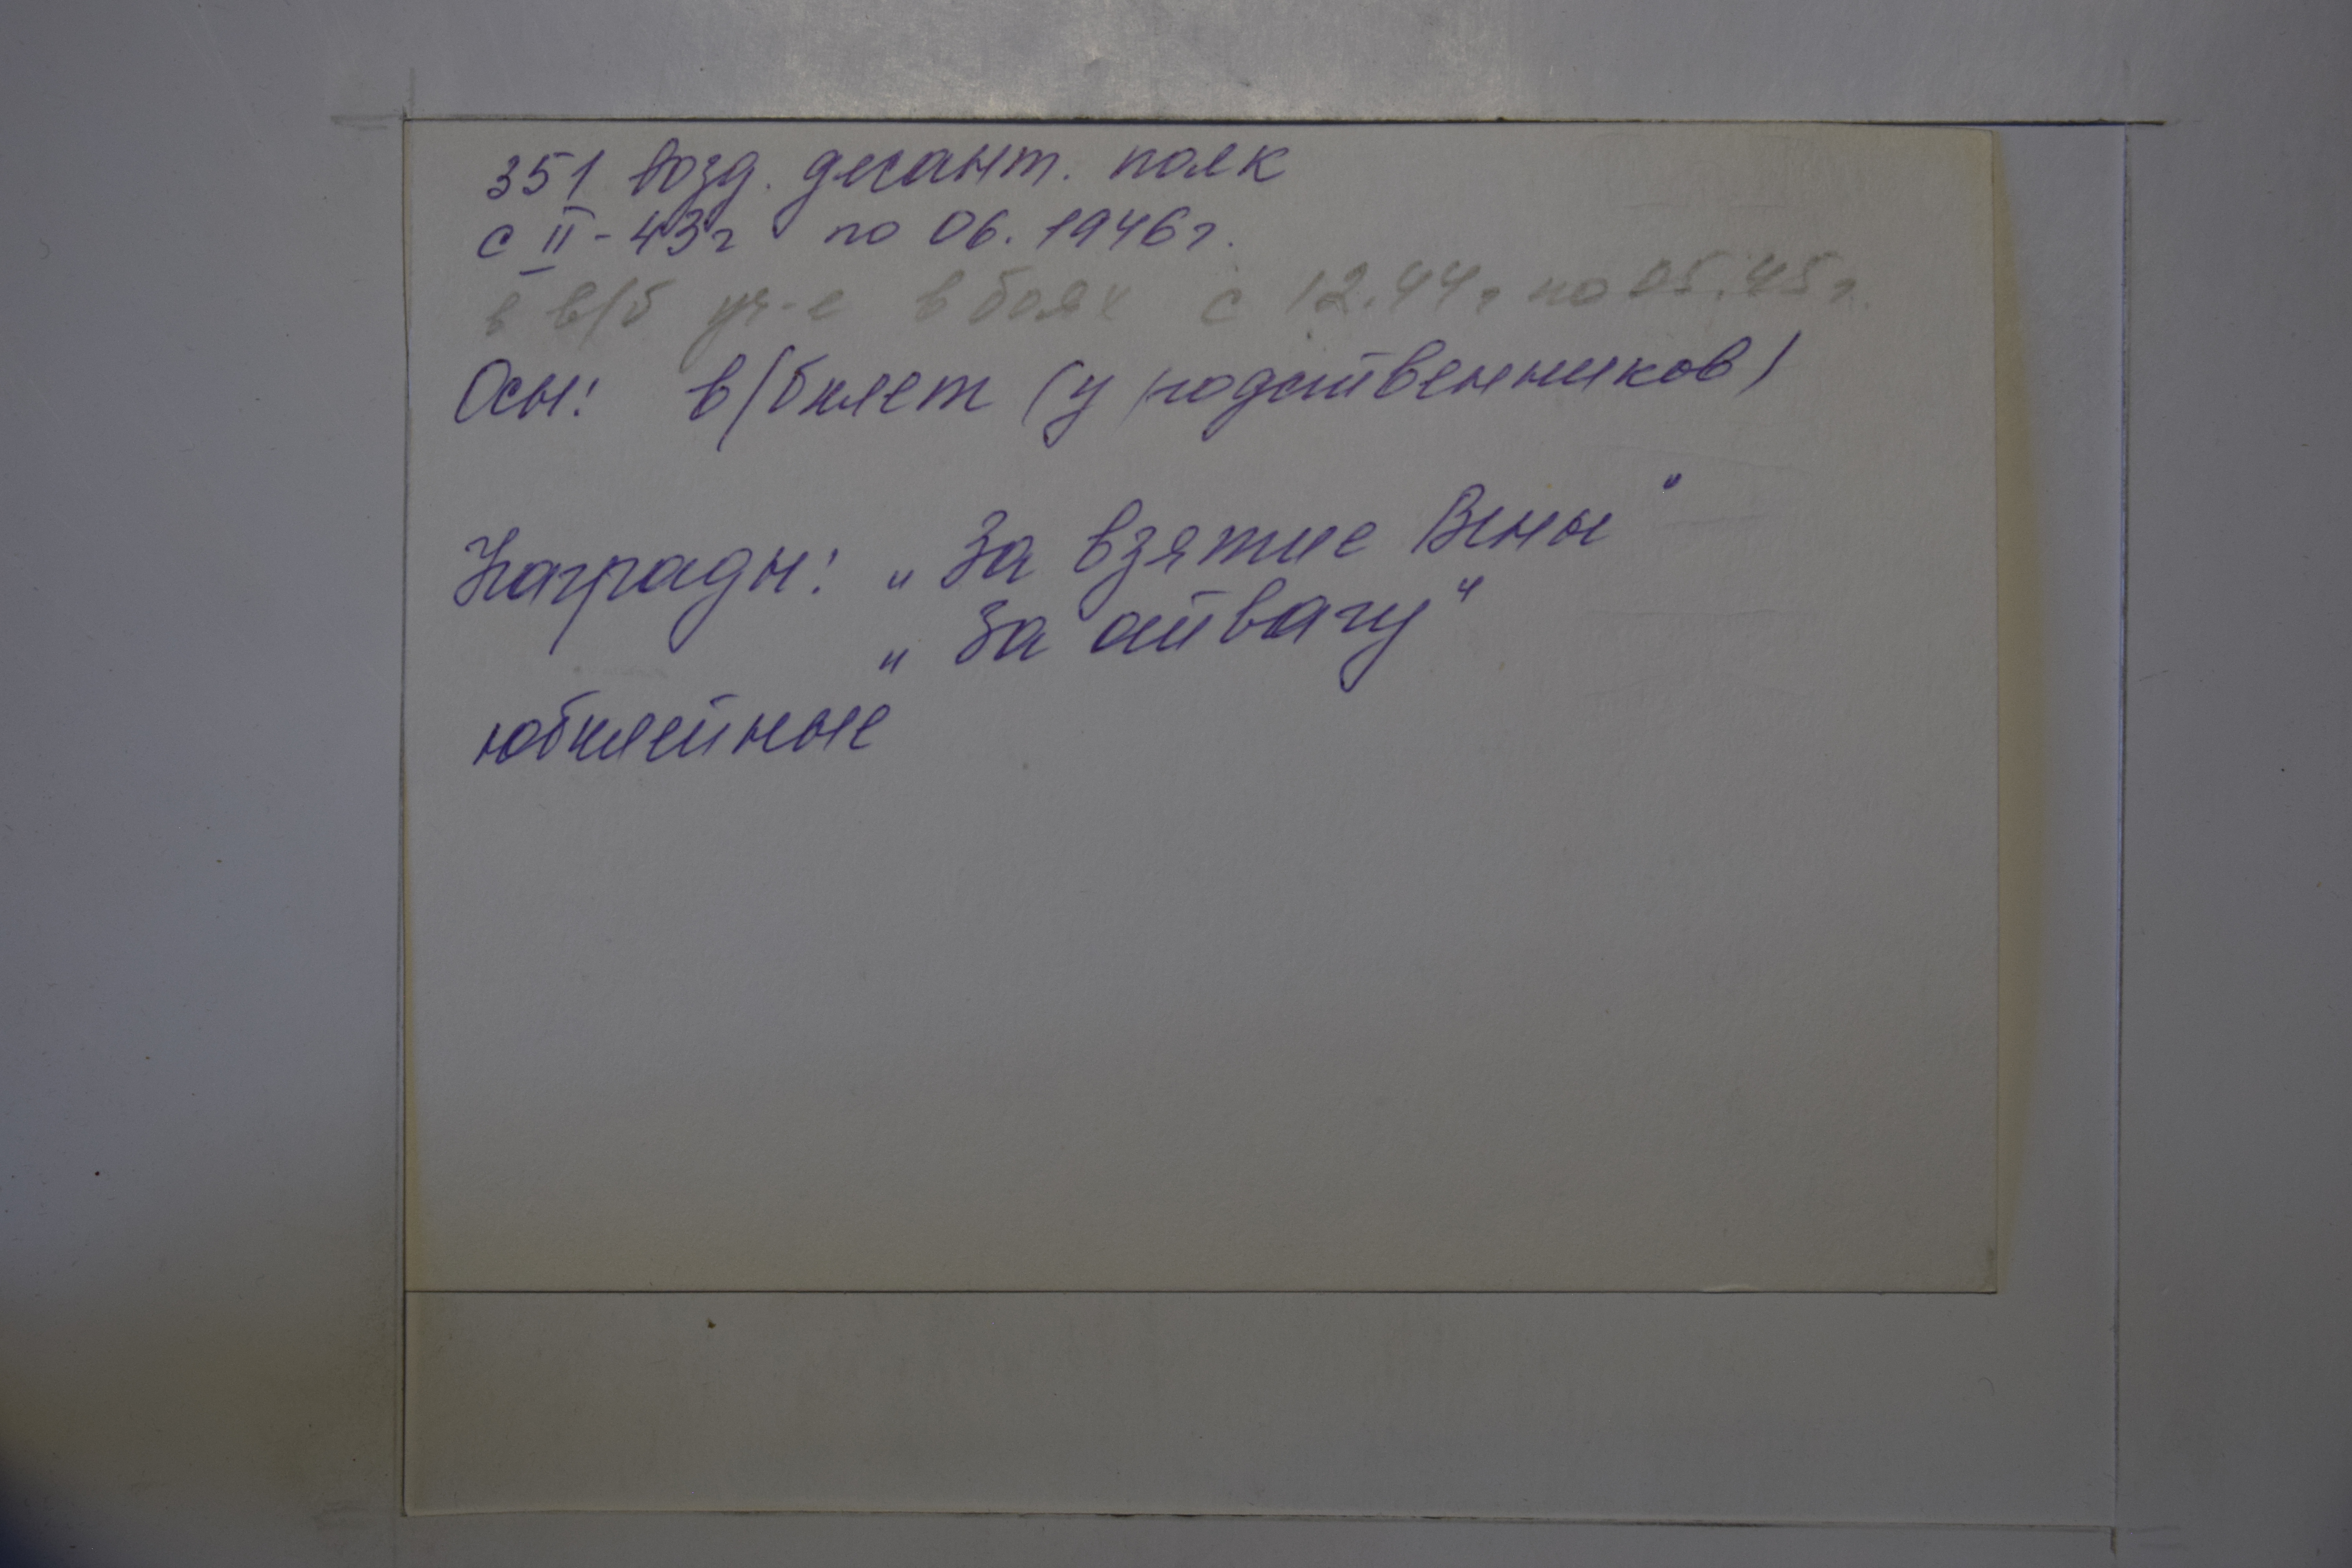 351 возд. десант. полк
с II - 43г по 06. 1946г.
в в/б уч-е в боях с 12.44г по 05.45г.
Осн: в/билет (у родственников)
Награды: „За взятие Вены"
„За отвагу"
юбилейные